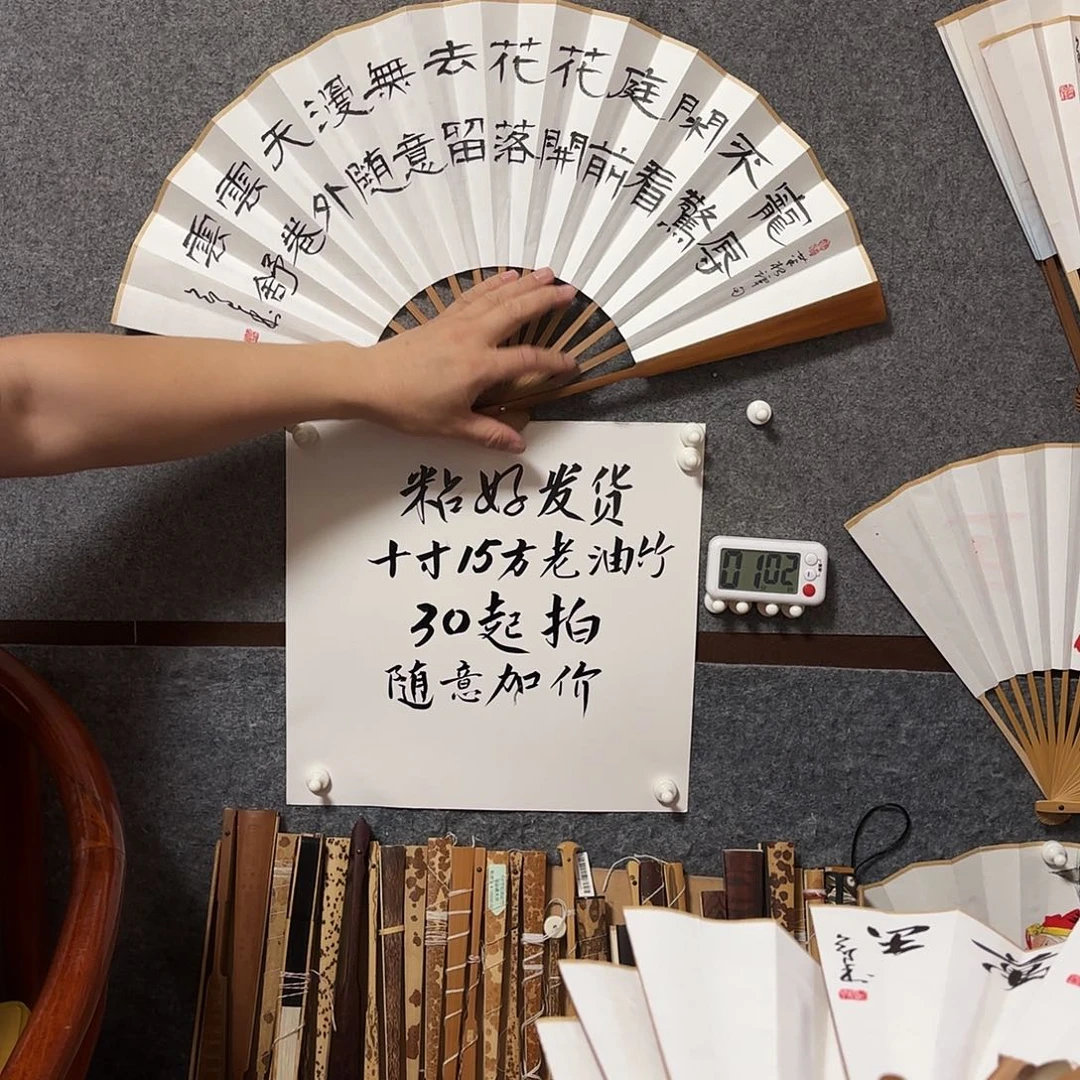 寵辱
不驚
閑看
庭前
花開
花落
去留
無意
漫隨
天外
雲卷
雲舒
菜根譚句
粘好发货
十寸15方老油竹
30起拍
随意加价
0102